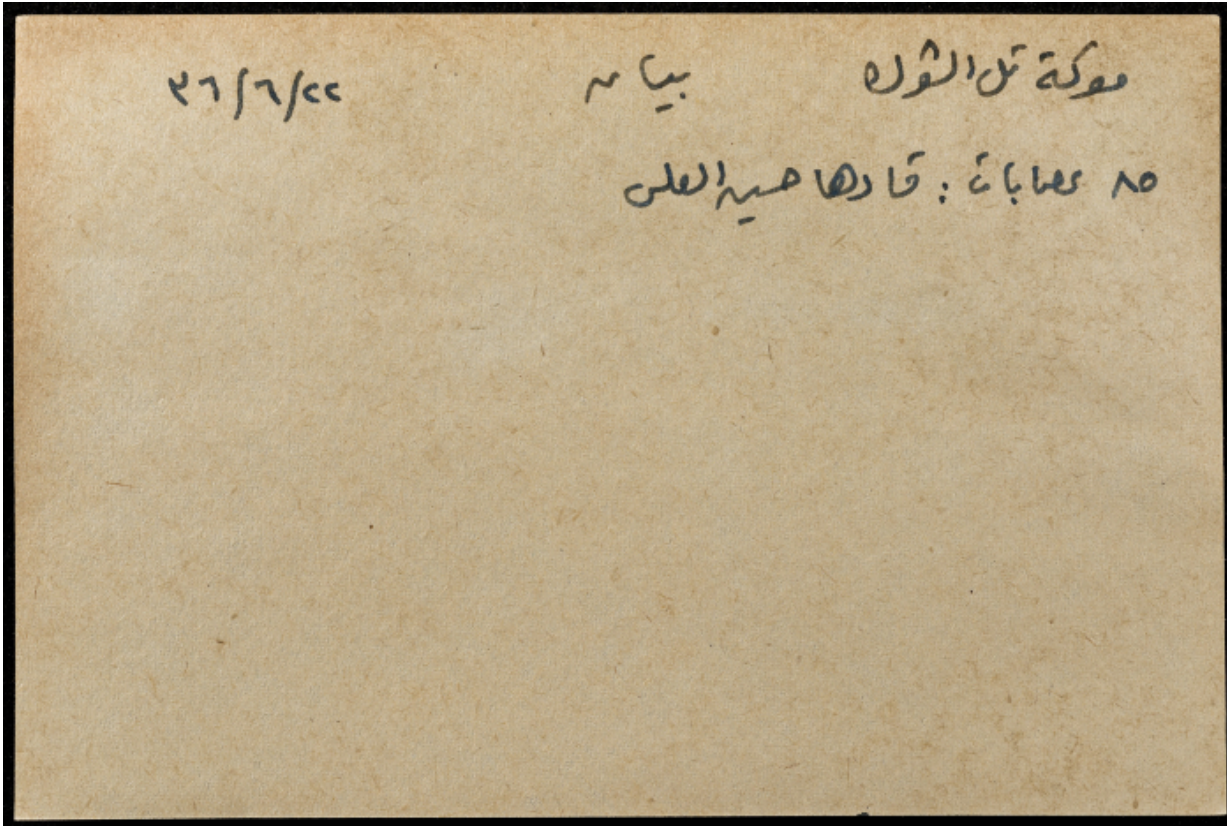 معركة تل الشوك بيسان ٣٦/٦/٢٢
٨٥ عصابات : قادها حسين العلي